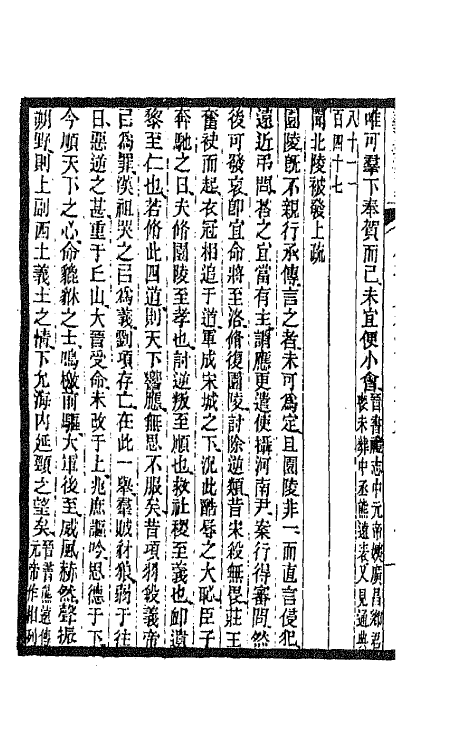 唯可羣下奉賀而已未宜便小會晉書禮志中元帝姨廣昌鄉君喪未葬中丞熊遠表又見通典
八十一一
百四十七
聞北陵被發上疏
園陵既不親行承傳言之者未可爲定且園陵非一而直言侵犯
遠近弔問荅之宜當有主謂應更遣使攝河南尹案行得審問然
後可發哀卽宜命將至洛修復園陵討除逆類昔宋殺無畏莊王
奮袂而起衣冠相追于道軍成宋城之下況此酷辱之大恥臣子
奔馳之日夫脩園陵至孝也討逆叛至順也救社稷至義也卹遺
黎至仁也若脩此四道則天下響應無思不服矣昔項羽殺義帝
已爲罪漢祖哭之已爲義劉項存亡在此一舉羣賊豺狼弱于往
日惡逆之甚重于丘山大晉受命未改于上兆庶謳吟思德于下
今順天下之心命貔貅之士鳴檄前驅大軍後至威風赫然聲振
朔野則上副西土義士之情下允海內延頸之望矣晉書熊遠傳元帝作相列